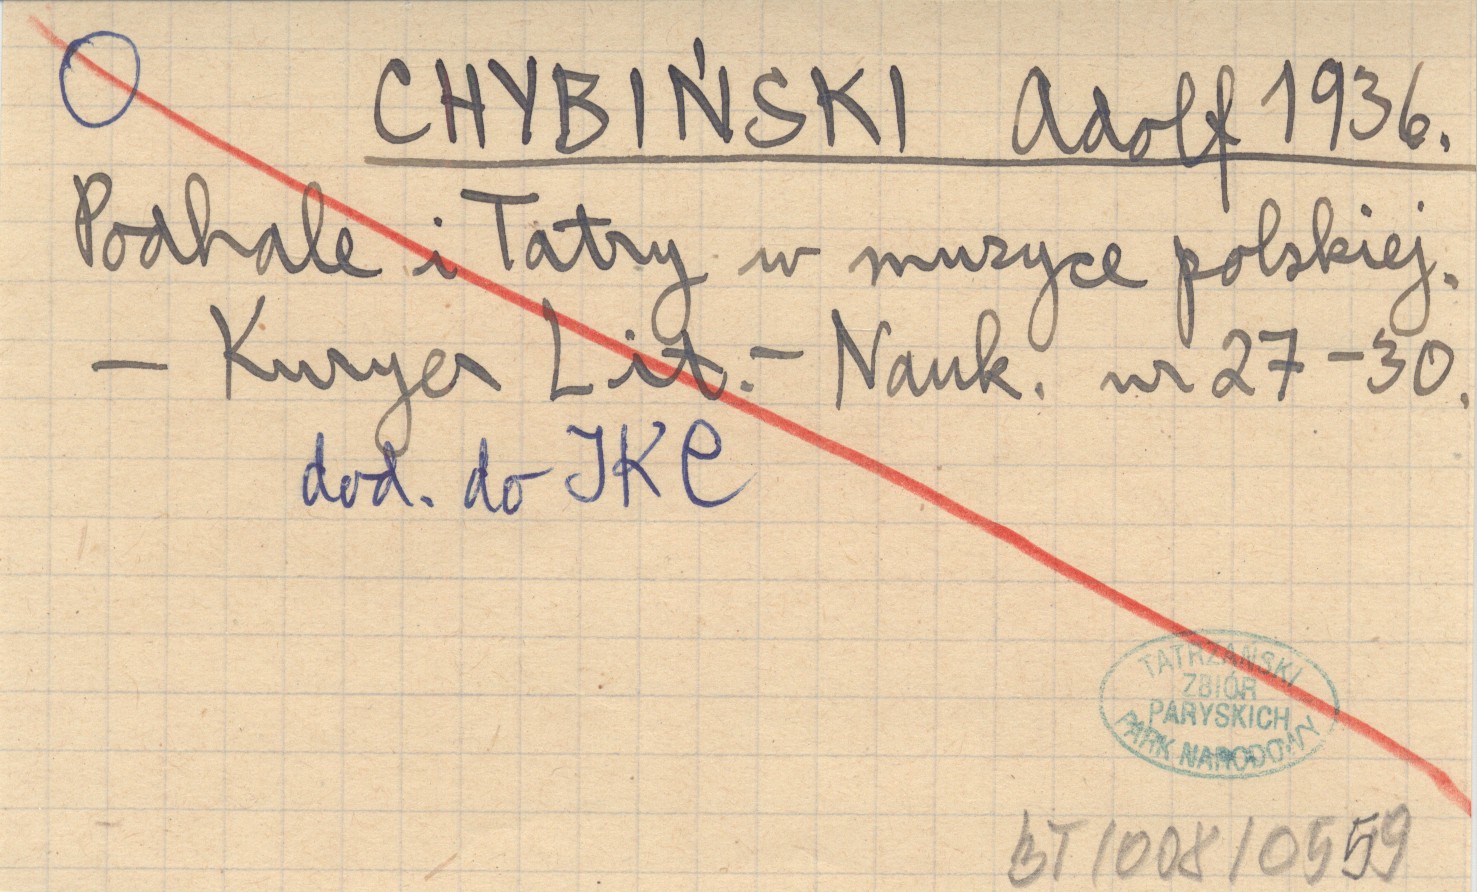 CHYBIŃSKI Adolf 1936.
Podhale i Tatry w muzyce polskiej.
— Kuryer Lit.- Nauk. nr 27-30.
dod. do IKC
TATRZAŃSKI
ZBIÓR
PARYSKICH
PARK NARODOWY
BT/008/0559